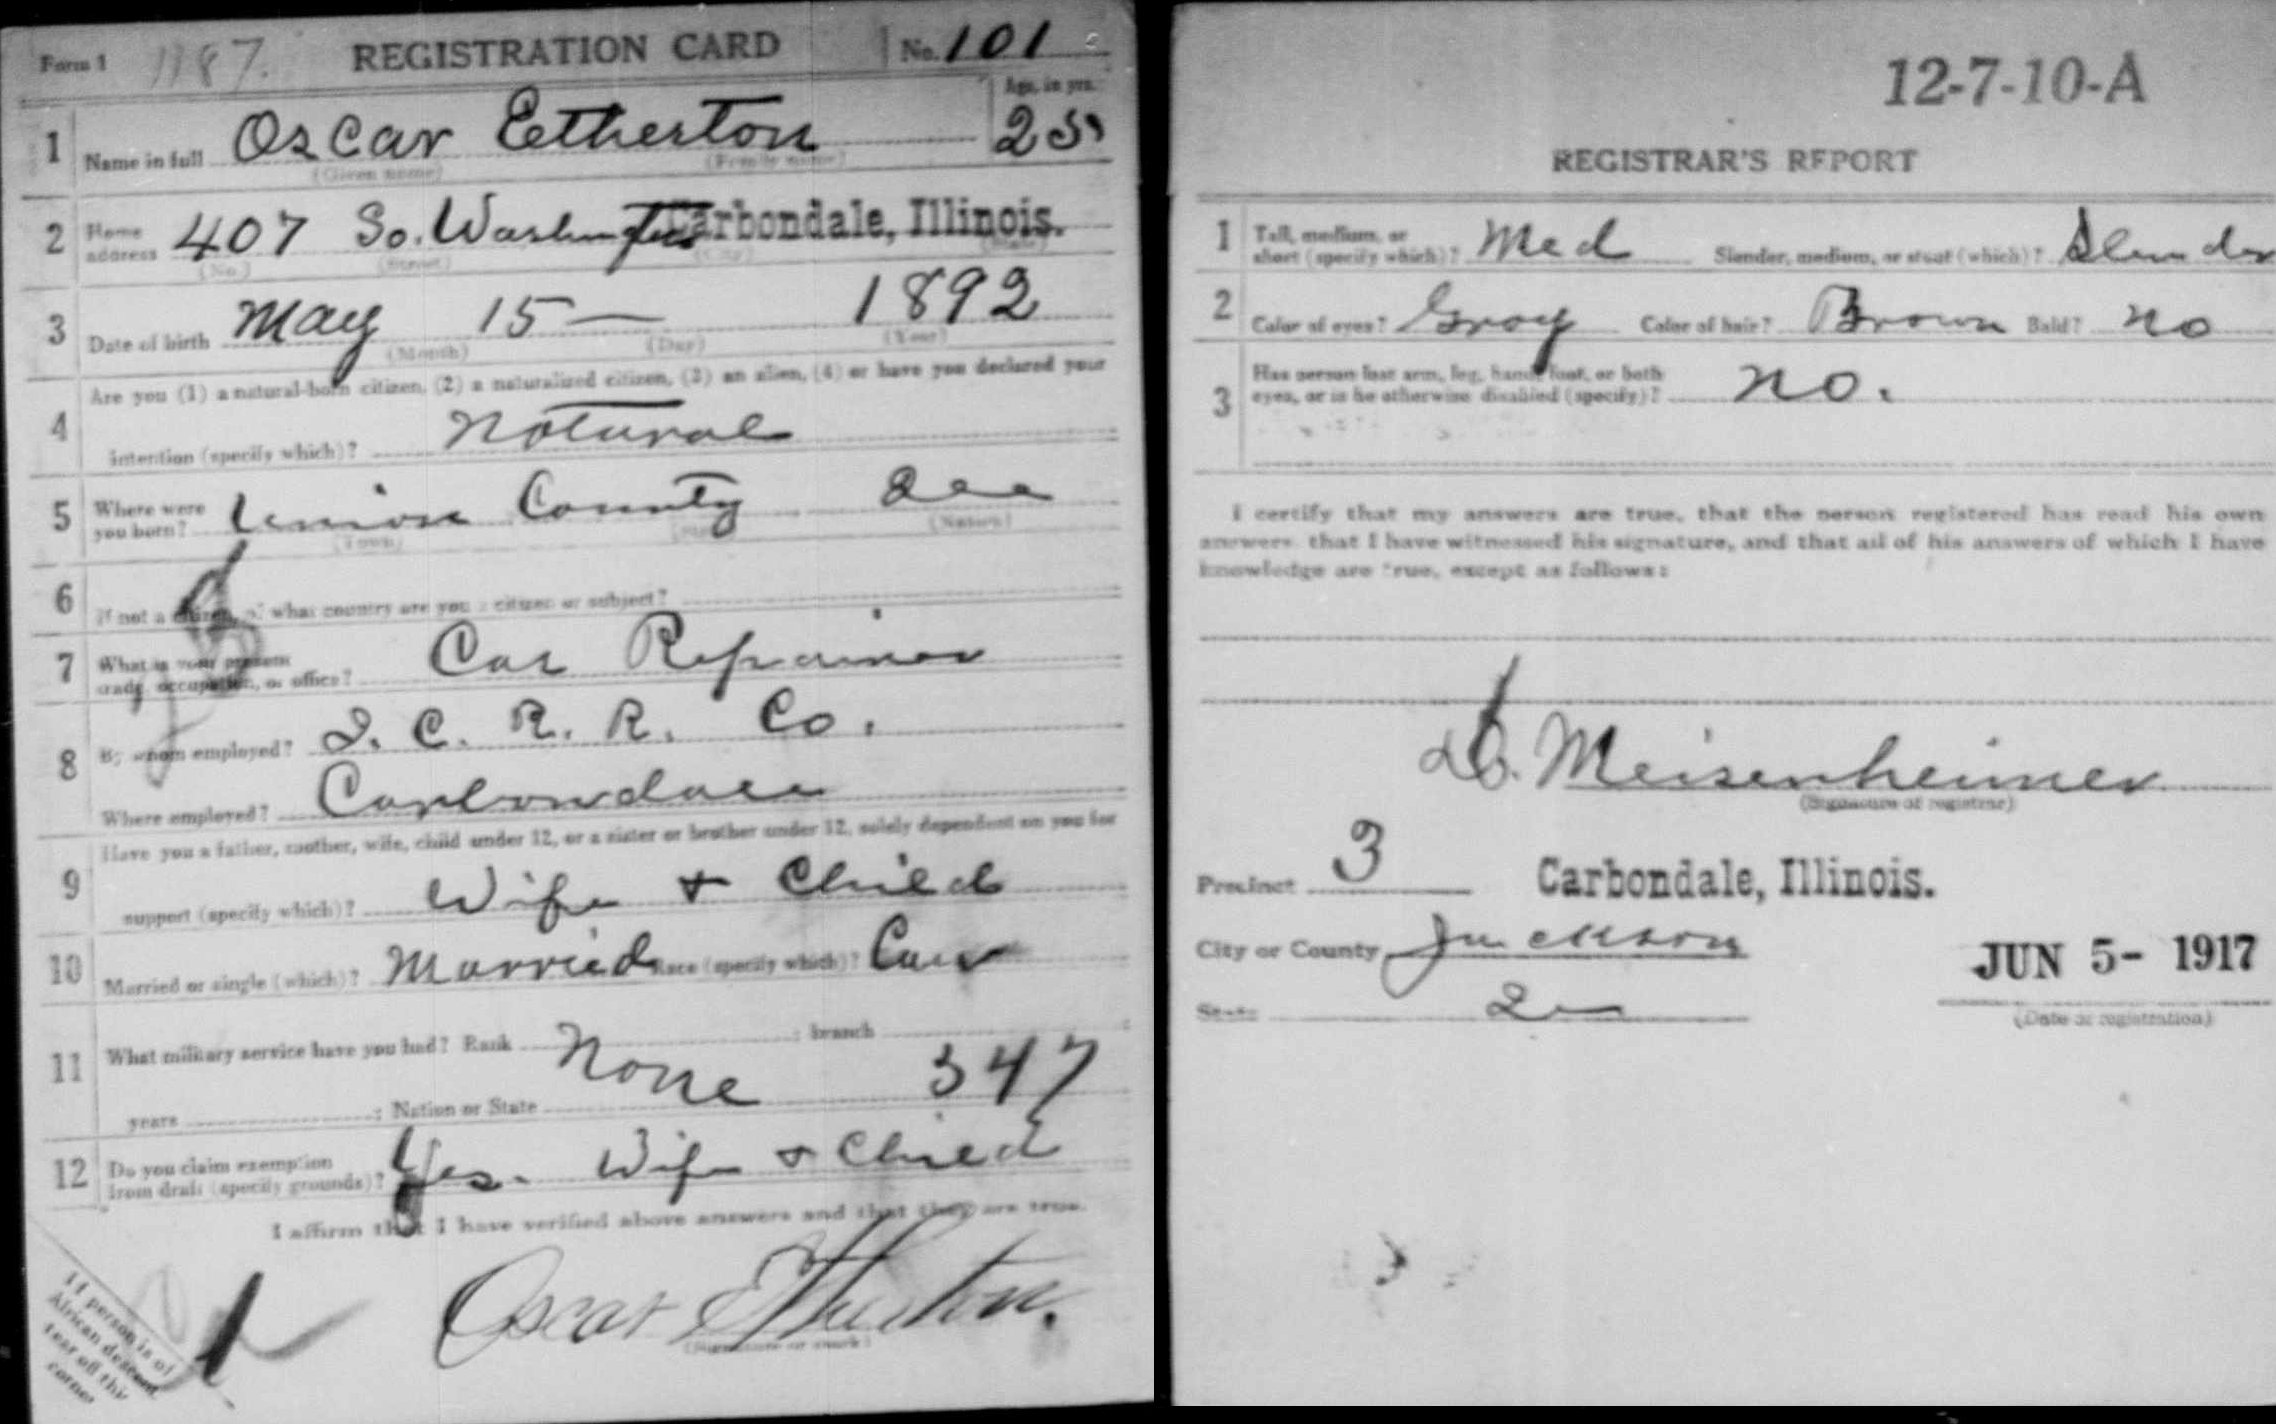 Form 1 1187. REGISTRATION CARD No. 101
Age, in yrs.
1 Name in full Oscar Etherton 25
(Given name) (Family name)
2 Home address 407 So. Washington Carbondale, Illinois.
(No.) (Street) (City) (State)
3 Date of birth May 15 — 1892
(Month) (Day) (Year)
Are you (1) a natural-born citizen, (2) a naturalized citizen, (3) an alien, (4) or have you declared your
4 intention (specify which)? Natural
5 Where were you born? Union County Ill
(Town) (State) (Nation)
6 If not a citizen, of what country are you a citizen or subject?
7 What is your present trade, occupation, or office? Car Repairer
8 By whom employed? I. C. R. R. Co.
Where employed? Carbondale
Have you a father, mother, wife, child under 12, or a sister or brother under 12, solely dependent on you for
9 support (specify which)? Wife + Child
10 Married or single (which)? Married Race (specify which)? Cau
11 What military service have you had? Rank None ; branch
347
years ; Nation or State
12 Do you claim exemption from draft (specify grounds)? Yes. Wife + Child
I affirm that I have verified above answers and that they are true.
Oscar Etherton.
(Signature or mark)
If person is of
African descent
tear off this
corner
12-7-10-A
REGISTRAR'S REPORT
1 Tall, medium, or short (specify which)? Med Slender, medium, or stout (which)? Slender
2 Color of eyes? Gray Color of hair? Brown Bald? No
3 Has person lost arm, leg, hand, foot, or both eyes, or is he otherwise disabled (specify)? No.
I certify that my answers are true, that the person registered has read his own
answers, that I have witnessed his signature, and that all of his answers of which I have
knowledge are true, except as follows:
Meisenheimer
(Signature of registrar)
Precinct 3 Carbondale, Illinois.
City or County Jackson JUN 5- 1917
State
(Date of registration)